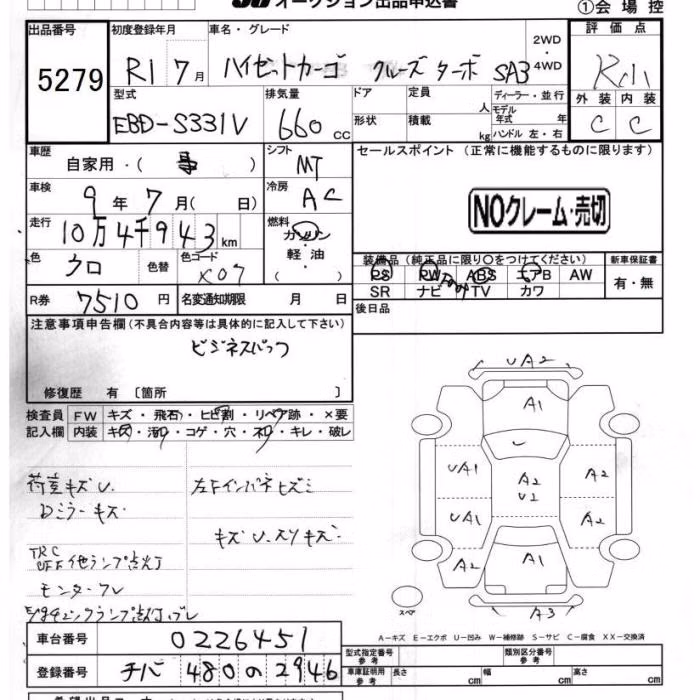 オークション出品申込書
①会場控
出品番号 初度登録年月 車名・グレード 2WD・4WD 評価点
5279 R1 7月 ハイゼットカーゴ クルーズターボ SA3
型式 排気量 ドア 定員 人 ディーラー・並行 外装 内装
EBD-S331V 660cc 形状 積載 kg モデル年式 年 ハンドル 左・右 C C
車歴 自家用・( ) シフト MT セールスポイント (正常に機能するものに限ります)
車検 9年7月( 日) 冷房 AC
NOクレーム・売切
走行 10万4千943km 燃料 ガソリン・軽油・( )
色 クロ 色替 色コード X07
装備品 (純正品に限り○をつけてください) 新車保証書
PS PW ABS エアB AW 有・無
SR ナビ TV カワ
R券 7510円 名変通知期限 月 日 後日品
注意事項申告欄(不具合内容等は具体的に記入して下さい)
ビジネスパック
修復歴 有 〔箇所 〕
検査員 FW キズ・飛石・ヒビ割・リペア跡・×要
記入欄 内装 キズ・汚れ・コゲ・穴・ネジ・キレ・破レ
荷室キズU. 左Fインパネヒズミ
Dミラーキズ
キズU.スリキズ.
TRC
OFF 他ランプ点灯
モニターフレ
UA2
A1
UA1 A2 U2 A2
UA1 A2
A2 A1
スペ A3
A-キズ E-エクボ U-凹み W-補修跡 S-サビ C-腐食 XX-交換済
車台番号 0226451
登録番号 チバ 480 の 2946
型式指定番号 参考 類別区分番号 参考
車庫証明用 参考 長さ cm 幅 cm 高さ cm